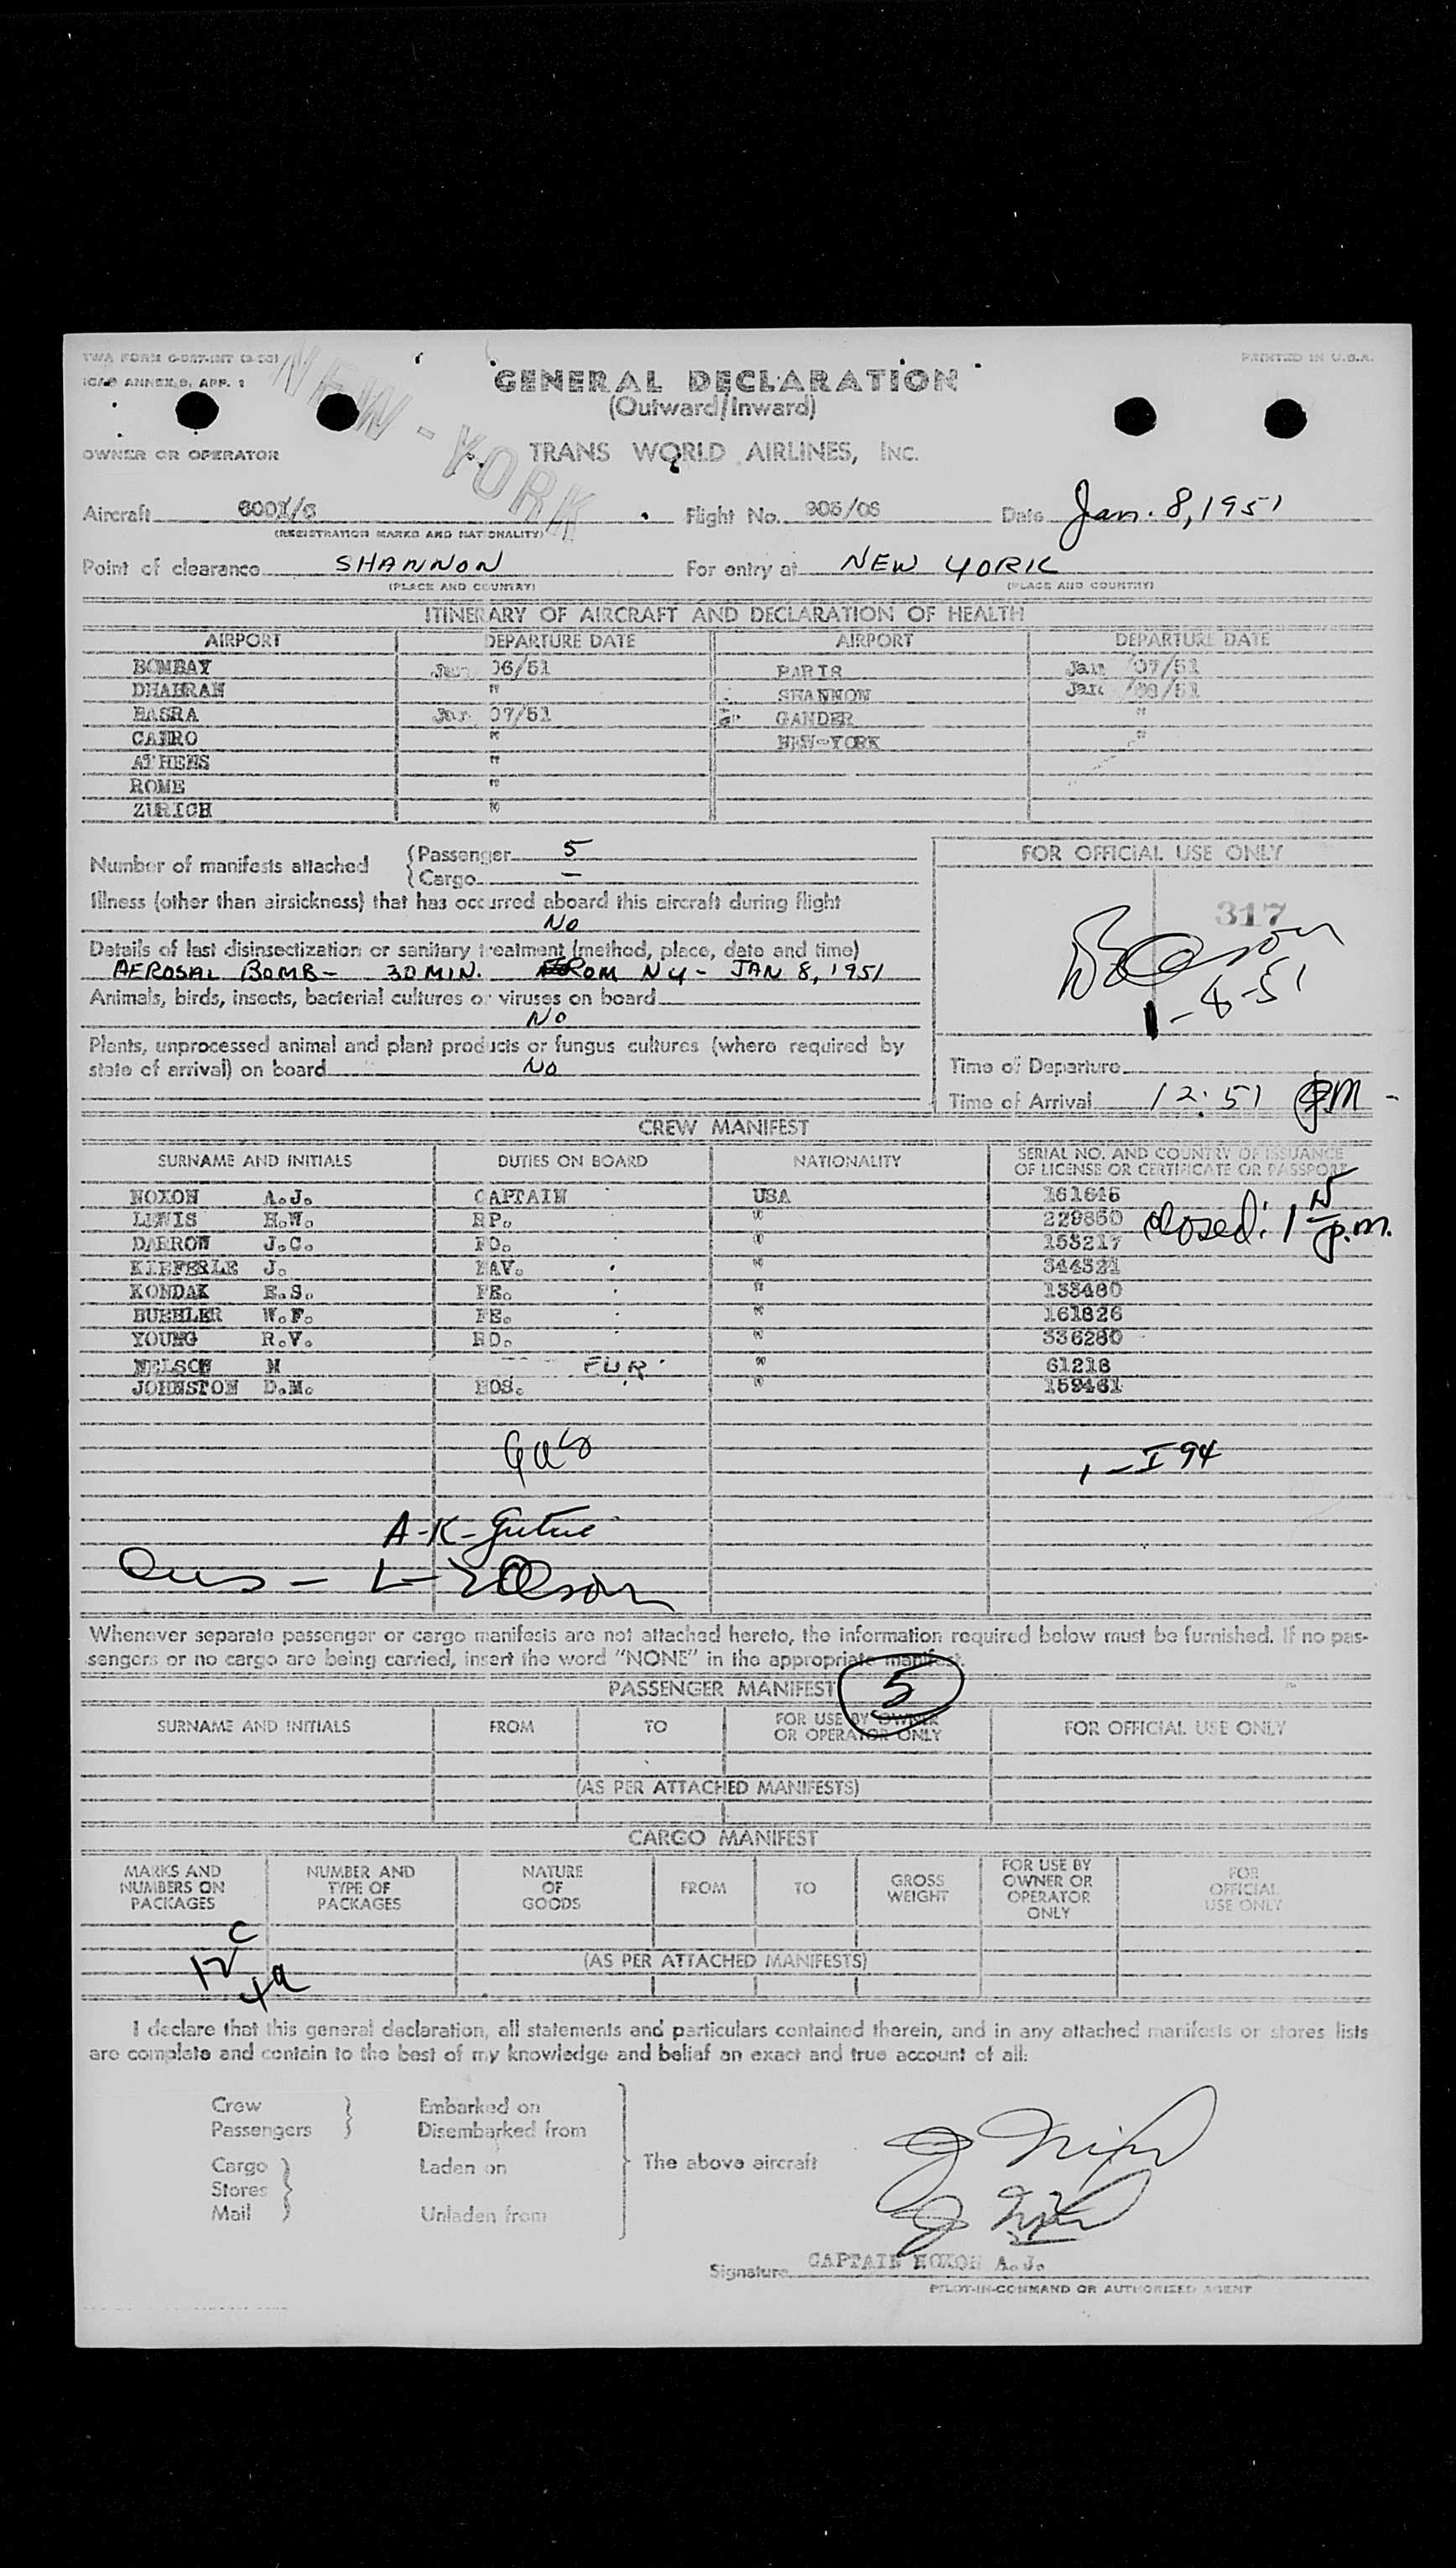 PRINTED IN U.S.A.
ICAO ANNEX 9, APP. 1
NEW-YORK
GENERAL DECLARATION
(Outward/Inward)
OWNER OR OPERATOR TRANS WORLD AIRLINES, INC.
Aircraft Flight No. Date Jan. 8, 1951
(REGISTRATION MARKS AND NATIONALITY)
Point of clearance SHANNON For entry at NEW YORK
(PLACE AND COUNTRY) (PLACE AND COUNTRY)
ITINERARY OF AIRCRAFT AND DECLARATION OF HEALTH
AIRPORT DEPARTURE DATE AIRPORT DEPARTURE DATE
BOMBAY Jan 06/51 PARIS Jan 07/51
DHAHRAN " SHANNON Jan 08/51
BASRA Jan 07/51 GANDER "
CAIRO " NEW-YORK "
ATHENS "
ROME "
ZURICH "
Number of manifests attached Passenger 5
Cargo —
FOR OFFICIAL USE ONLY
317
Illness (other than airsickness) that has occurred aboard this aircraft during flight
No
Details of last disinsectization or sanitary treatment (method, place, date and time)
AEROSAL BOMB - 30 MIN. FROM NY - JAN 8, 1951
Animals, birds, insects, bacterial cultures or viruses on board
No
1-8-51
Plants, unprocessed animal and plant products or fungus cultures (where required by
state of arrival) on board No
Time of Departure
Time of Arrival 12:51 PM -
CREW MANIFEST
SURNAME AND INITIALS DUTIES ON BOARD NATIONALITY SERIAL NO. AND COUNTRY OF ISSUANCE
OF LICENSE OR CERTIFICATE OR PASSPORT
NOXON A.J. CAPTAIN USA
LEWIS H.W. " 229850
closed: 1 15 p.m.
DARRON J.C. FO. " 153217
KIEFERLE J. NAV. " 344321
KONDAK E.S. FE. " 133480
BUEHLER W.F. FE. " 161826
YOUNG R.V. RO. " 336280
NELSON M PUR "  61218
JOHNSTON D.M. HOS. " 159461
1 - I 94
Whenever separate passenger or cargo manifests are not attached hereto, the information required below must be furnished. If no pas-
sengers or no cargo are being carried, insert the word "NONE" in the appropriate manifest.
PASSENGER MANIFEST 5
SURNAME AND INITIALS FROM TO FOR USE BY OWNER
OR OPERATOR ONLY FOR OFFICIAL USE ONLY
(AS PER ATTACHED MANIFESTS)
CARGO MANIFEST
MARKS AND
NUMBERS ON
PACKAGES
NUMBER AND
TYPE OF
PACKAGES
NATURE
OF
GOODS
FROM
TO
GROSS
WEIGHT
FOR USE BY
OWNER OR
OPERATOR
ONLY
FOR
OFFICIAL
USE ONLY
(AS PER ATTACHED MANIFESTS)
I declare that this general declaration, all statements and particulars contained therein, and in any attached manifests or stores lists
are complete and contain to the best of my knowledge and belief an exact and true account of all:
Crew Embarked on
Passengers Disembarked from
Cargo Laden on The above aircraft
Stores
Mail Unladen from
Signature CAPTAIN NOXON A.J.
PILOT-IN-COMMAND OR AUTHORIZED AGENT